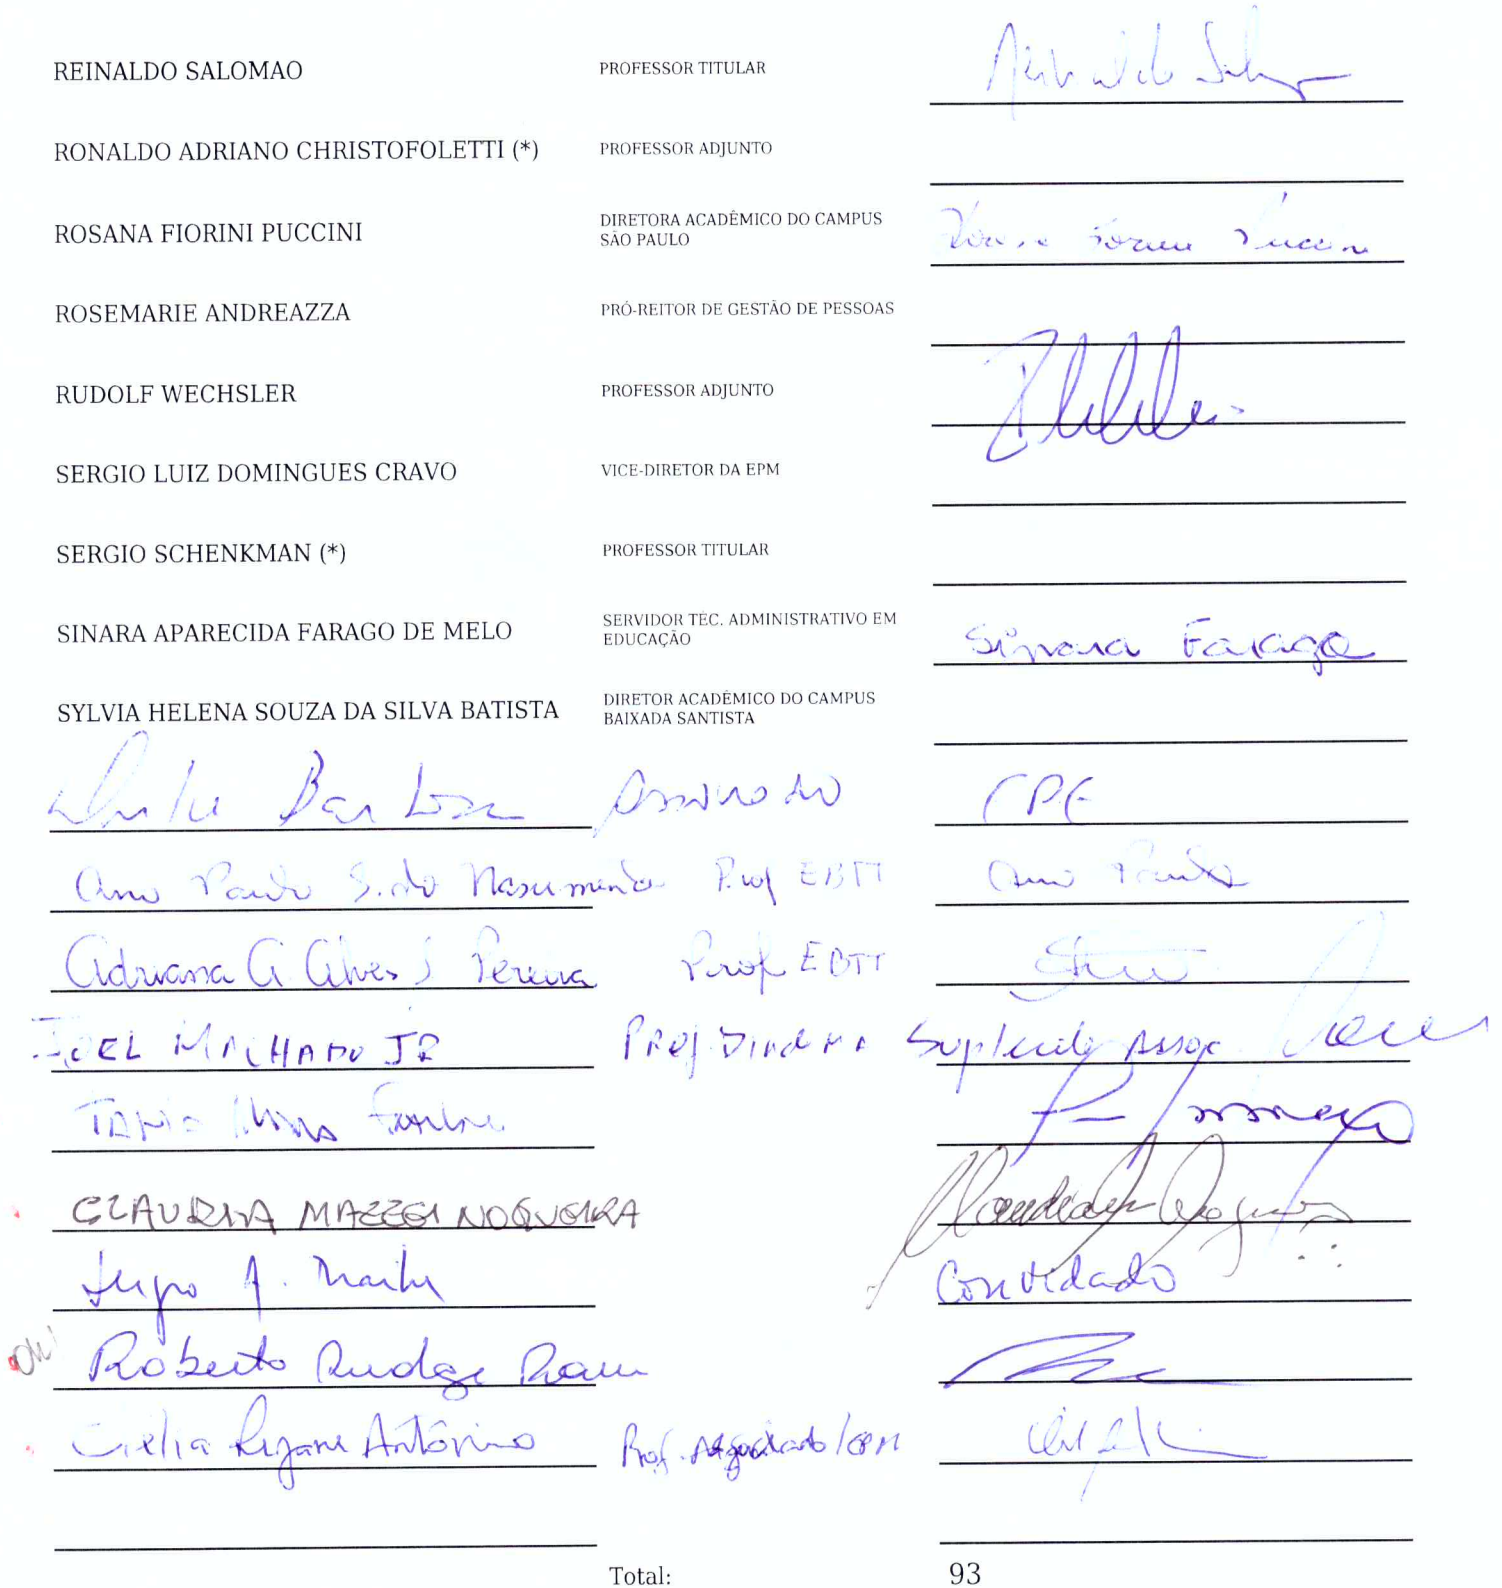 REINALDO SALOMAO PROFESSOR TITULAR
RONALDO ADRIANO CHRISTOFOLETTI (*) PROFESSOR ADJUNTO
ROSANA FIORINI PUCCINI DIRETORA ACADÊMICO DO CAMPUS
SÃO PAULO
ROSEMARIE ANDREAZZA PRÓ-REITOR DE GESTÃO DE PESSOAS
RUDOLF WECHSLER PROFESSOR ADJUNTO
SERGIO LUIZ DOMINGUES CRAVO VICE-DIRETOR DA EPM
SERGIO SCHENKMAN (*) PROFESSOR TITULAR
SINARA APARECIDA FARAGO DE MELO SERVIDOR TÉC. ADMINISTRATIVO EM
EDUCAÇÃO Sinara Farago
SYLVIA HELENA SOUZA DA SILVA BATISTA DIRETOR ACADÊMICO DO CAMPUS
BAIXADA SANTISTA
Barbosa
Ana Paula S. do Nascimento Prof EBTT Ana Paula
Adriana A Alves S Pereira Prof EBTT
JOEL MACHADO JR Prof. Diadema Suplente Assoc
TANIA
CLAUDIA MAZZEI NOGUEIRA
A. Convidado
Roberto Rudge
Célia Regiane Antônio Prof. Associado/EPM
Total: 93